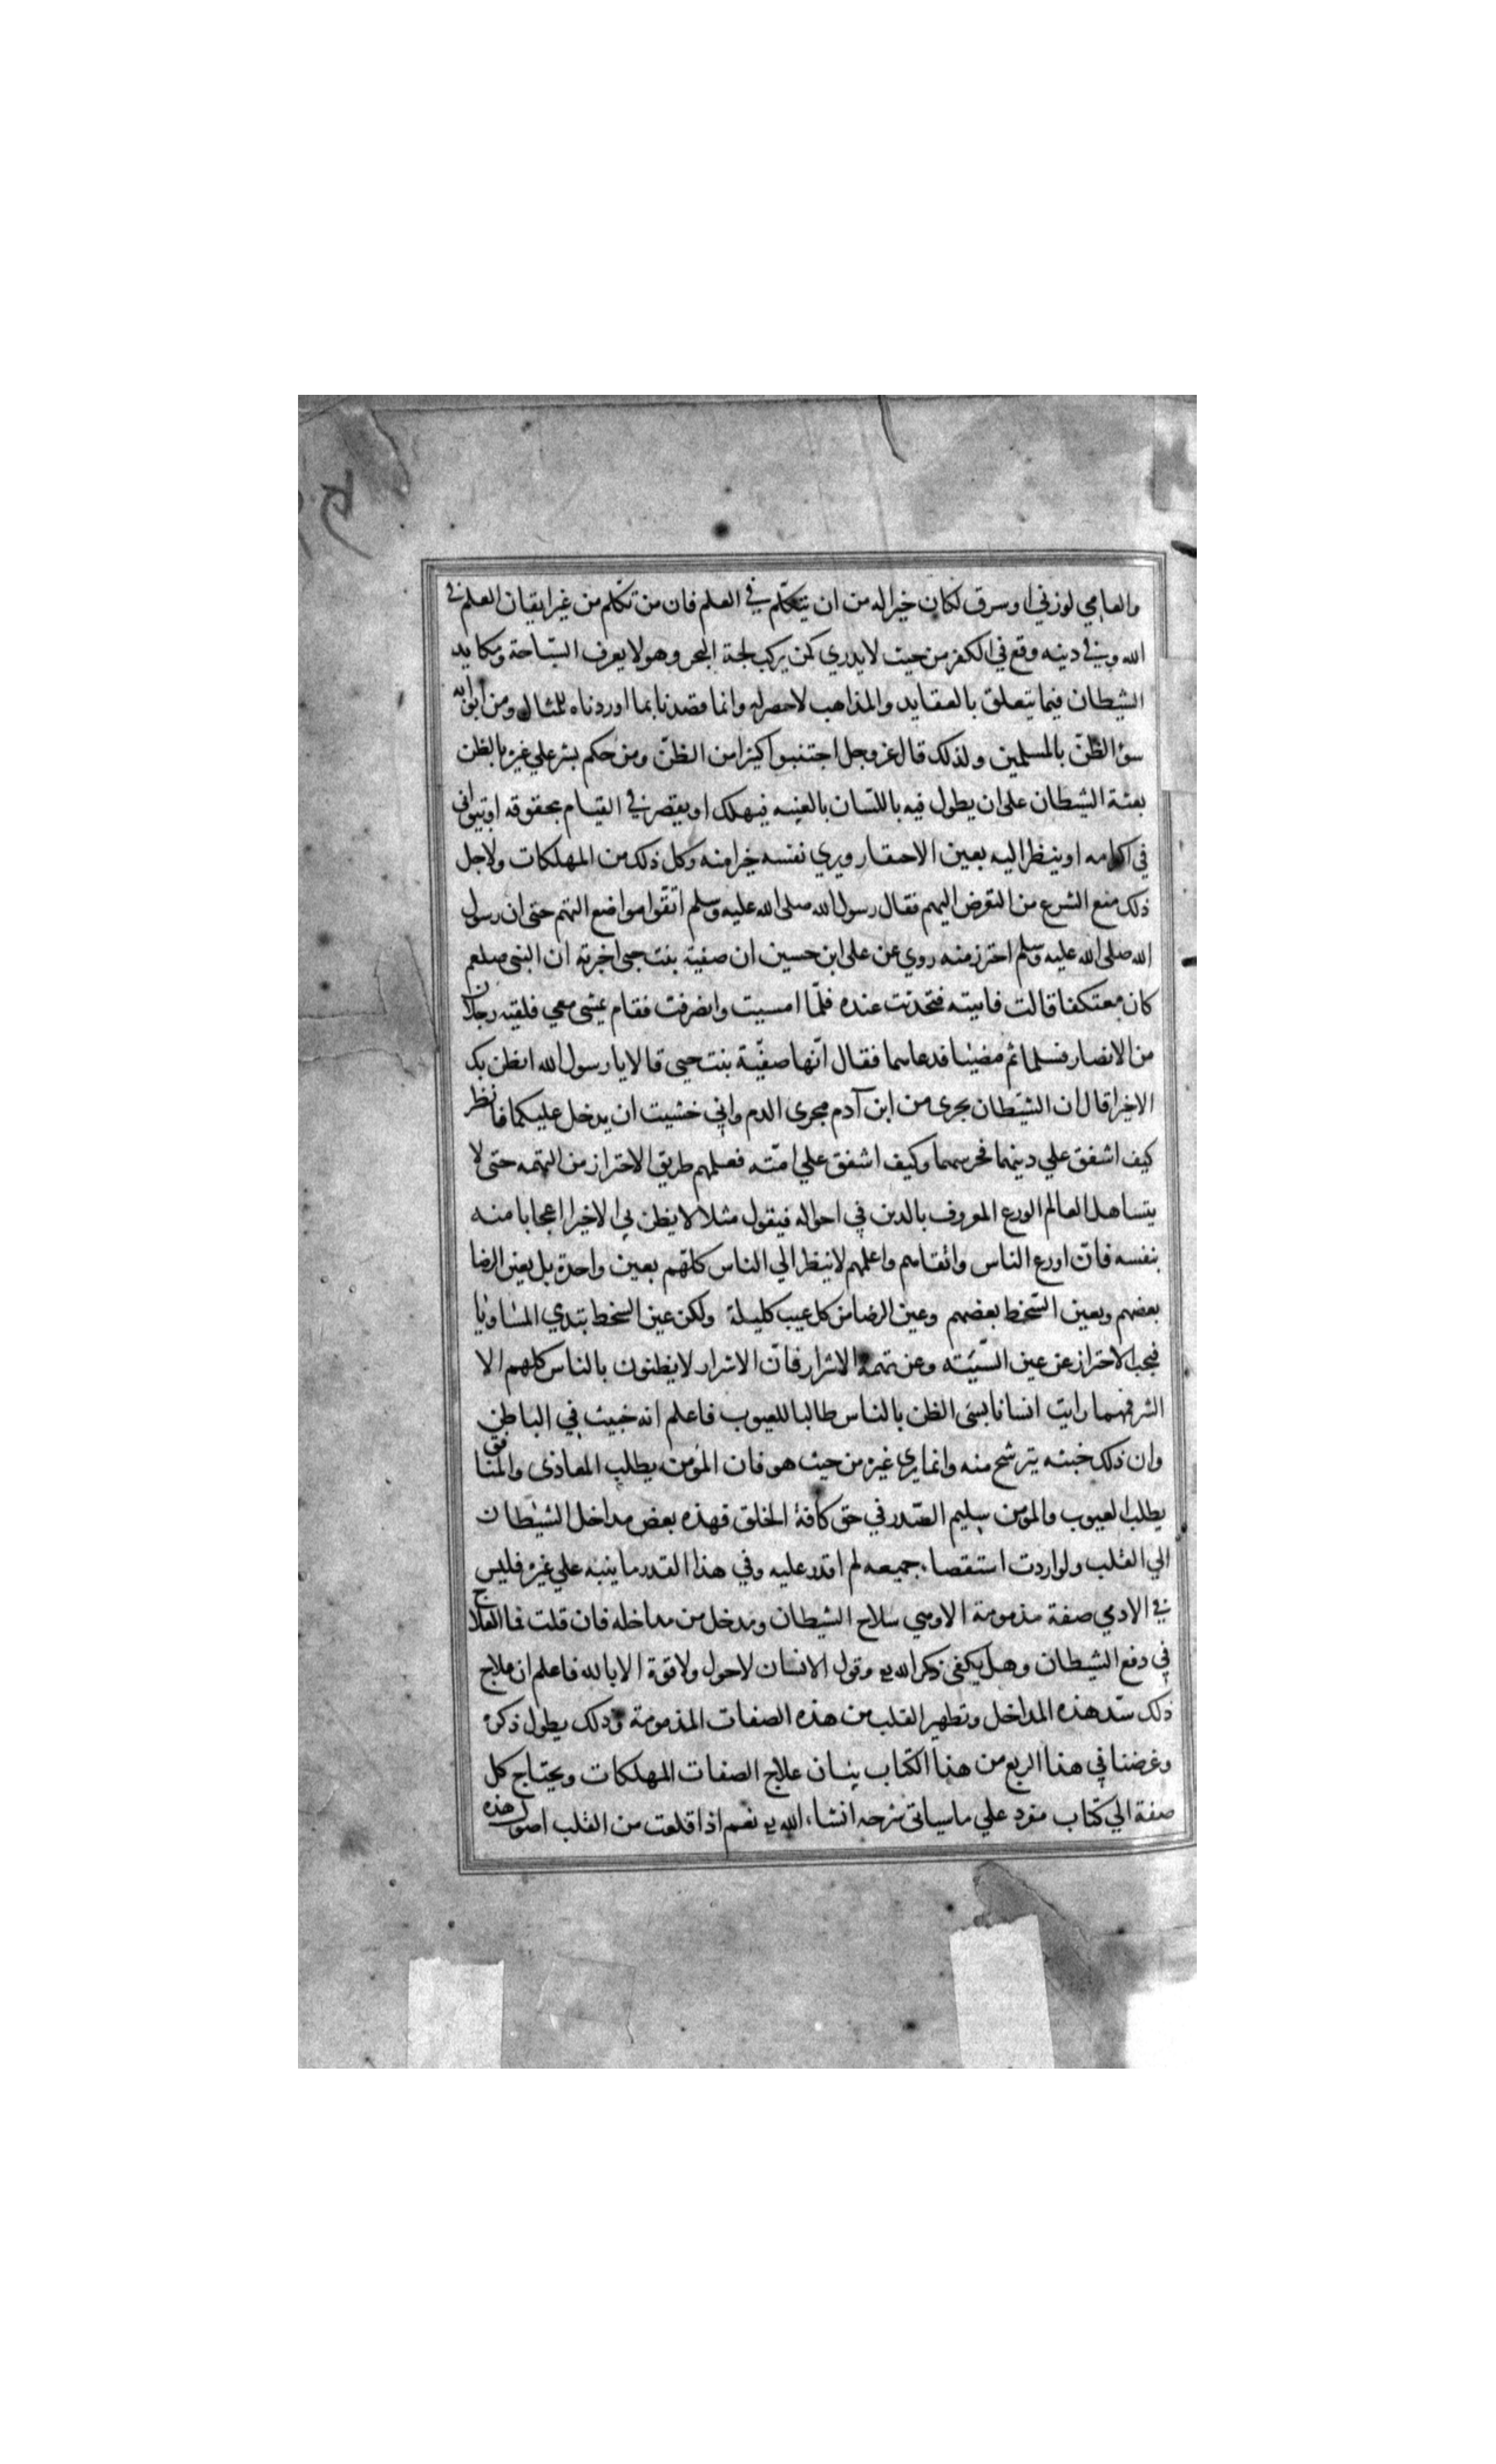 والعامي لوزني او سرق لكان خيرا له من ان يتكلم في العلم فان من تكلم من غير ايقان العلم في
الله وفي دينه وقع في الكفر من حيث لا يدري كمن يركب لجة البحر وهو لا يعرف السباحة ومكايد
الشيطان فيما يتعلق بالعقايد والمذاهب لا حصر له وانما قصدنا بما اوردناه للمثال ومن ابوابه
سوء الظن بالمسلمين ولذلك قال عز وجل اجتنبوا كثيرا من الظن ومن حكم بشر علي غيره بالظن
بعثه الشيطان على ان يطول فيه باللسان بالغيبه فيهلك او يقصر في القيام بحقوقه او يتواني
في اكرامه او ينظر اليه بعين الاحتقار ويري نفسه خيرا منه وكل ذلك من المهلكات ولاجل
ذلك منع الشرع من التعرض للتهم فقال رسول الله صلى الله عليه وسلم اتقوا مواضع التهم حتى ان رسول
الله صلى الله عليه وسلم احترز منه روي عن على ابن حسين ان صفية بنت حيى اخبرته ان النبى صلعم
كان معتكفا قالت فاتيته فتحدثت عنده فلما امسيت وانصرفت فقام يمشى معي فلقيه رجلان
من الانصار فسلما ثم مضيا فدعاهما فقال انها صفية بنت حيى قالا يا رسول الله انظن بك
الا خيرا قال ان الشيطان يجرى من ابن آدم مجرى الدم واني خشيت ان يدخل عليكما فانظر
كيف اشفق علي دينهما فحرسهما وكيف اشفق علي امته فعلمهم طريق الاحتراز من التهمه حتى لا
يتساهل العالم الورع المعروف بالدين في احواله فيقول مثلا لا يظن بي الا خيرا اعجابا منه
بنفسه فان اورع الناس واتقاهم واعلمهم لا ينظر الي الناس كلهم بعين واحدة بل بعين الرضا
بعضهم وبعين السخط بعضهم وعين الرضا من كل عيب كليلة ولكن عين السخط تبدي المساويا
فيجب الاحتراز عن عين السيئه وعن تهمة الاشرار فان الاشرار لا يظنون بالناس كلهم الا
الشر فمهما رايت انسانا يسئ الظن بالناس طالبا للعيوب فاعلم انه خبيث في الباطن
وان ذلك خبثه يترشح منه وانما يري غيره من حيث هو فان المؤمن يطلب المعاذى والمنافق
يطلب العيوب والمومن سليم الصدر في حق كافة الخلق فهذه بعض مداخل الشيطان
الي القلب ولو اردت استقصاء جميعه لم اقدر عليه وفي هذا القدر ما ينبه علي غيره فليس
في الادمي صفة مذمومة الا وهي سلاح الشيطان ومدخل من مداخله فان قلت فما العلاج
في دفع الشيطان وهل يكفى ذكر الله تع وقول الانسان لا حول ولا قوة الا بالله فاعلم ان علاج
ذلك سد هذه المداخل وتطهير القلب من هذه الصفات المذمومة وذلك يطول ذكره
وغرضنا في هذا الربع من هذا الكتاب بيان علاج الصفات المهلكات ويحتاج كل
صفة الي كتاب مفرد علي ما سياتى شرحه انشاء الله تع نعم اذا قلعت من القلب اصول هذه